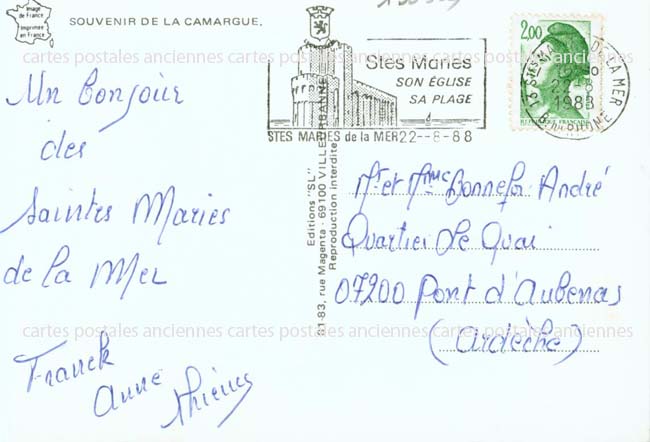 Image
de France
Imprimée
en France
SOUVENIR DE LA CAMARGUE.
Un bonjour
des
Saintes Maries
de la Mer
Franck
Anne
Thierry
Stes Maries
SON ÉGLISE
SA PLAGE
STES MARIES de la MER 22-8-88
2,00
REPUBLIQUE FRANÇAISE
STES MARIES DE LA MER
22-8
1988
B. DU RHONE
Editions "SL"
81-83, rue Magenta - 69100 VILLEURBANNE
Reproduction interdite
Mr et Mme Bonnefoi André
Quartier Le Quai
07200 Pont d'Aubenas
(Ardèche)
cartes postales anciennes cartes postales anciennes cartes postales anciennes
cartes postales anciennes cartes postales anciennes cartes postales anciennes